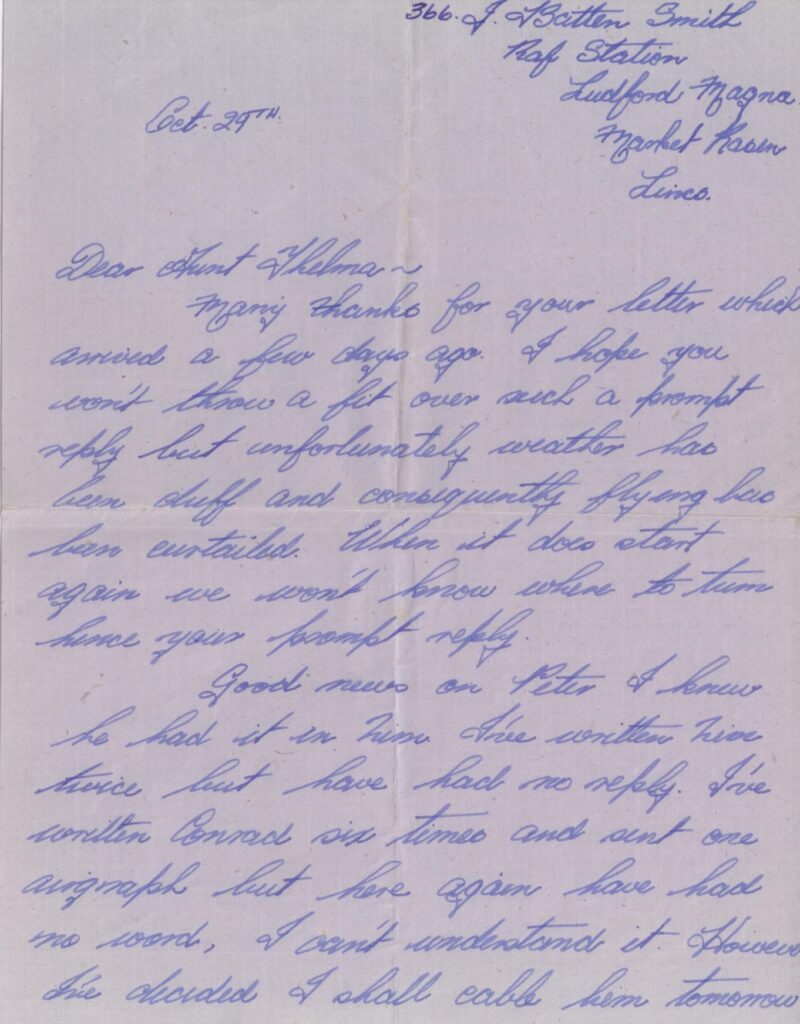 366. J. Batten Smith
Raf Station
Ludford Magna
Market Rasen
Lincs.
Oct. 29TH.
Dear Aunt Thelma ~
Many thanks for your letter which
arrived a few days ago. I hope you
won't throw a fit over such a prompt
reply but unfortunately weather has
been duff and consequently flying has
been curtailed. When it does start
again we won't know where to turn
hence your prompt reply.
Good news on Peter I knew
he had it in him. I've written him
twice but have had no reply. I've
written Conrad six times and sent one
airgraph but here again have had
no word, I can't understand it. However
I've decided I shall cable him tomorrow